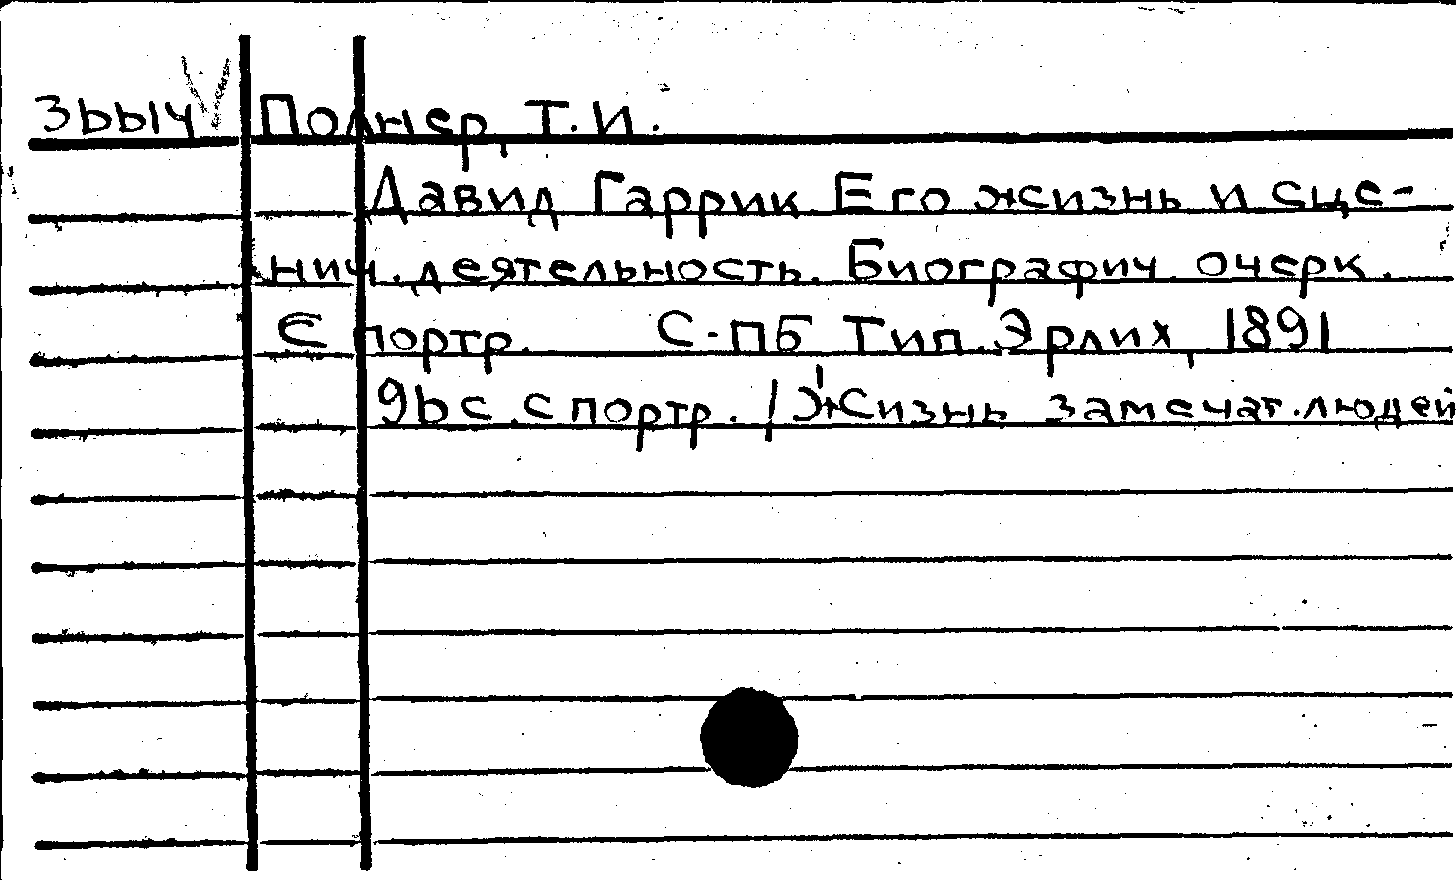 36614 Полнер, Т.И.
Давид Гаррик. Его жизнь и сце-
нич. деятельность. Биографич. очерк.
С портр. С-ПБ Тип. Эрлих, 1891
96 с. с портр. /Жизнь замечат. людей